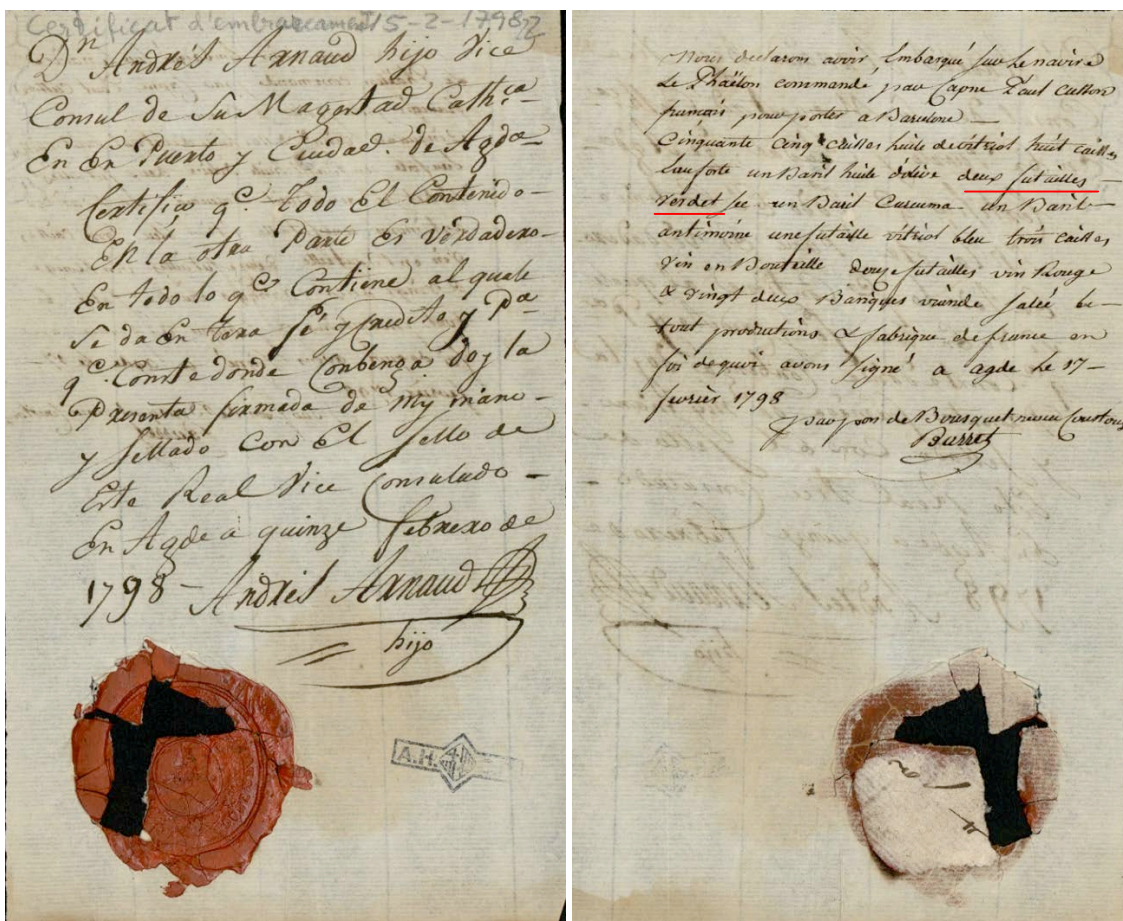 Certificat d'embarcament 15-2-1798
Dn Andrés Arnaud hijo Vice
Consul de Su Magestad Cathca
En En Puerto y Ciudad de Agda
Certifico qe todo El Contenido
En la otra Parte Es Verdadero
En todo lo qe Contiene al quale
Se da Entera fé y Credito y Pa
qe Conste donde Conbenga doy la
Presenta firmada de my mano
y Sellado Con El Sello de
Este Real Vice Consulado
En Agde a quinze febrero de
1798 - Andrés Arnaud
hijo
A.H.
Nous declarons avoir Embarqué sur Le navire
Le Phaëton commandé par Capne Paul
français pour porter a Barcelone
Cinquante Cinq caisses huile de vitriol huit caisses
Eau forte un Baril huile d'olive deux futailles
Verdet sec un Baril Curcuma un Baril
antimoine une futaille vitriol bleu trois caisses
vin en Bouteille douze futailles vin Rouge
& vingt deux Barques viande salée le
tout productions & fabrique de france en
foi de quoi avons signé a agde Le 17
fevrièr 1798
de Bousquet neveu
Barret